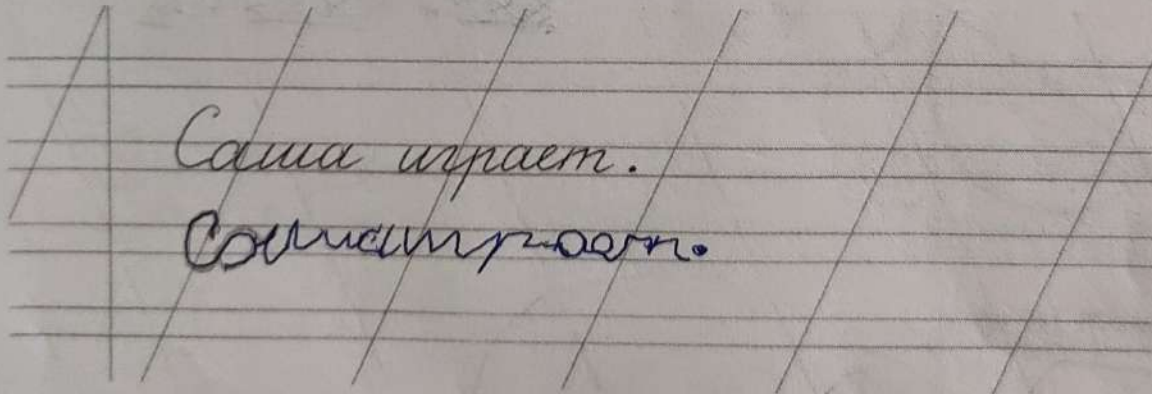 Саша играет.
Сашаиграет.